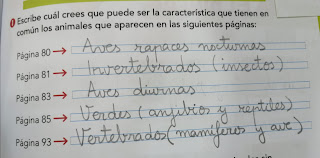 1 Escribe cuál crees que puede ser la característica que tienen en
común los animales que aparecen en las siguientes páginas:
Página 80 → Aves rapaces nocturnas
Página 81 → Invertebrados (insectos)
Página 83 → Aves diurnas
Página 85 → Verdes (anfibios y reptiles)
Página 93 → Vertebrados (mamíferos y ave)